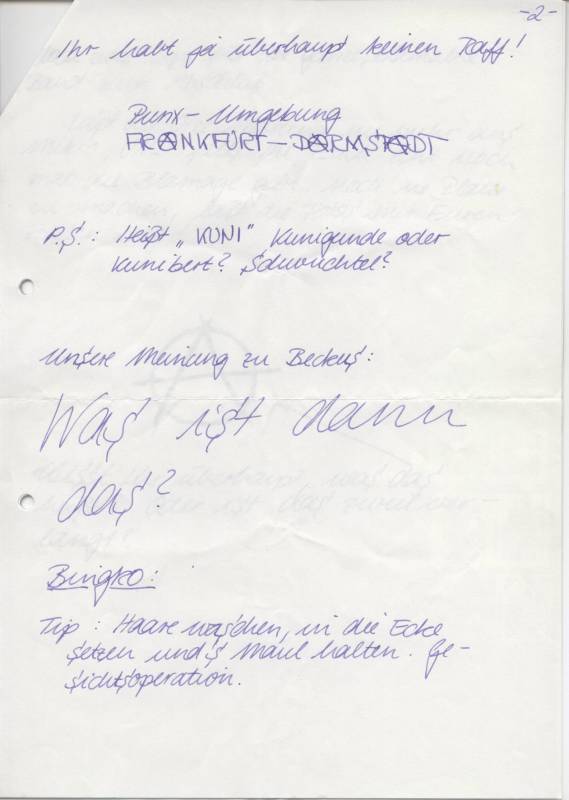 -2-
Ihr habt ja überhaupt keinen Raff!
Punx - Umgebung
FRANKFURT - DARMSTADT
P.S.: Heißt „KUNI" Kunigunde oder
Kunibert? Schwuchtel?
Unsere Meinung zu Beckus:
Was ist dann
das?
Bingko:
Tip: Haare waschen, in die Ecke
setzen und's Maul halten. Ge-
sichtsoperation.